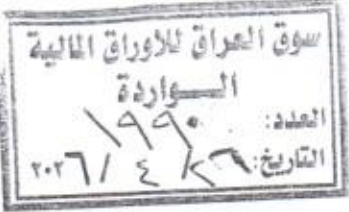 سوق العراق للاوراق المالية
الـــواردة
العدد: ١٩٩٠
التاريخ: ٢٦ / ٤ / ٢٠٢٦